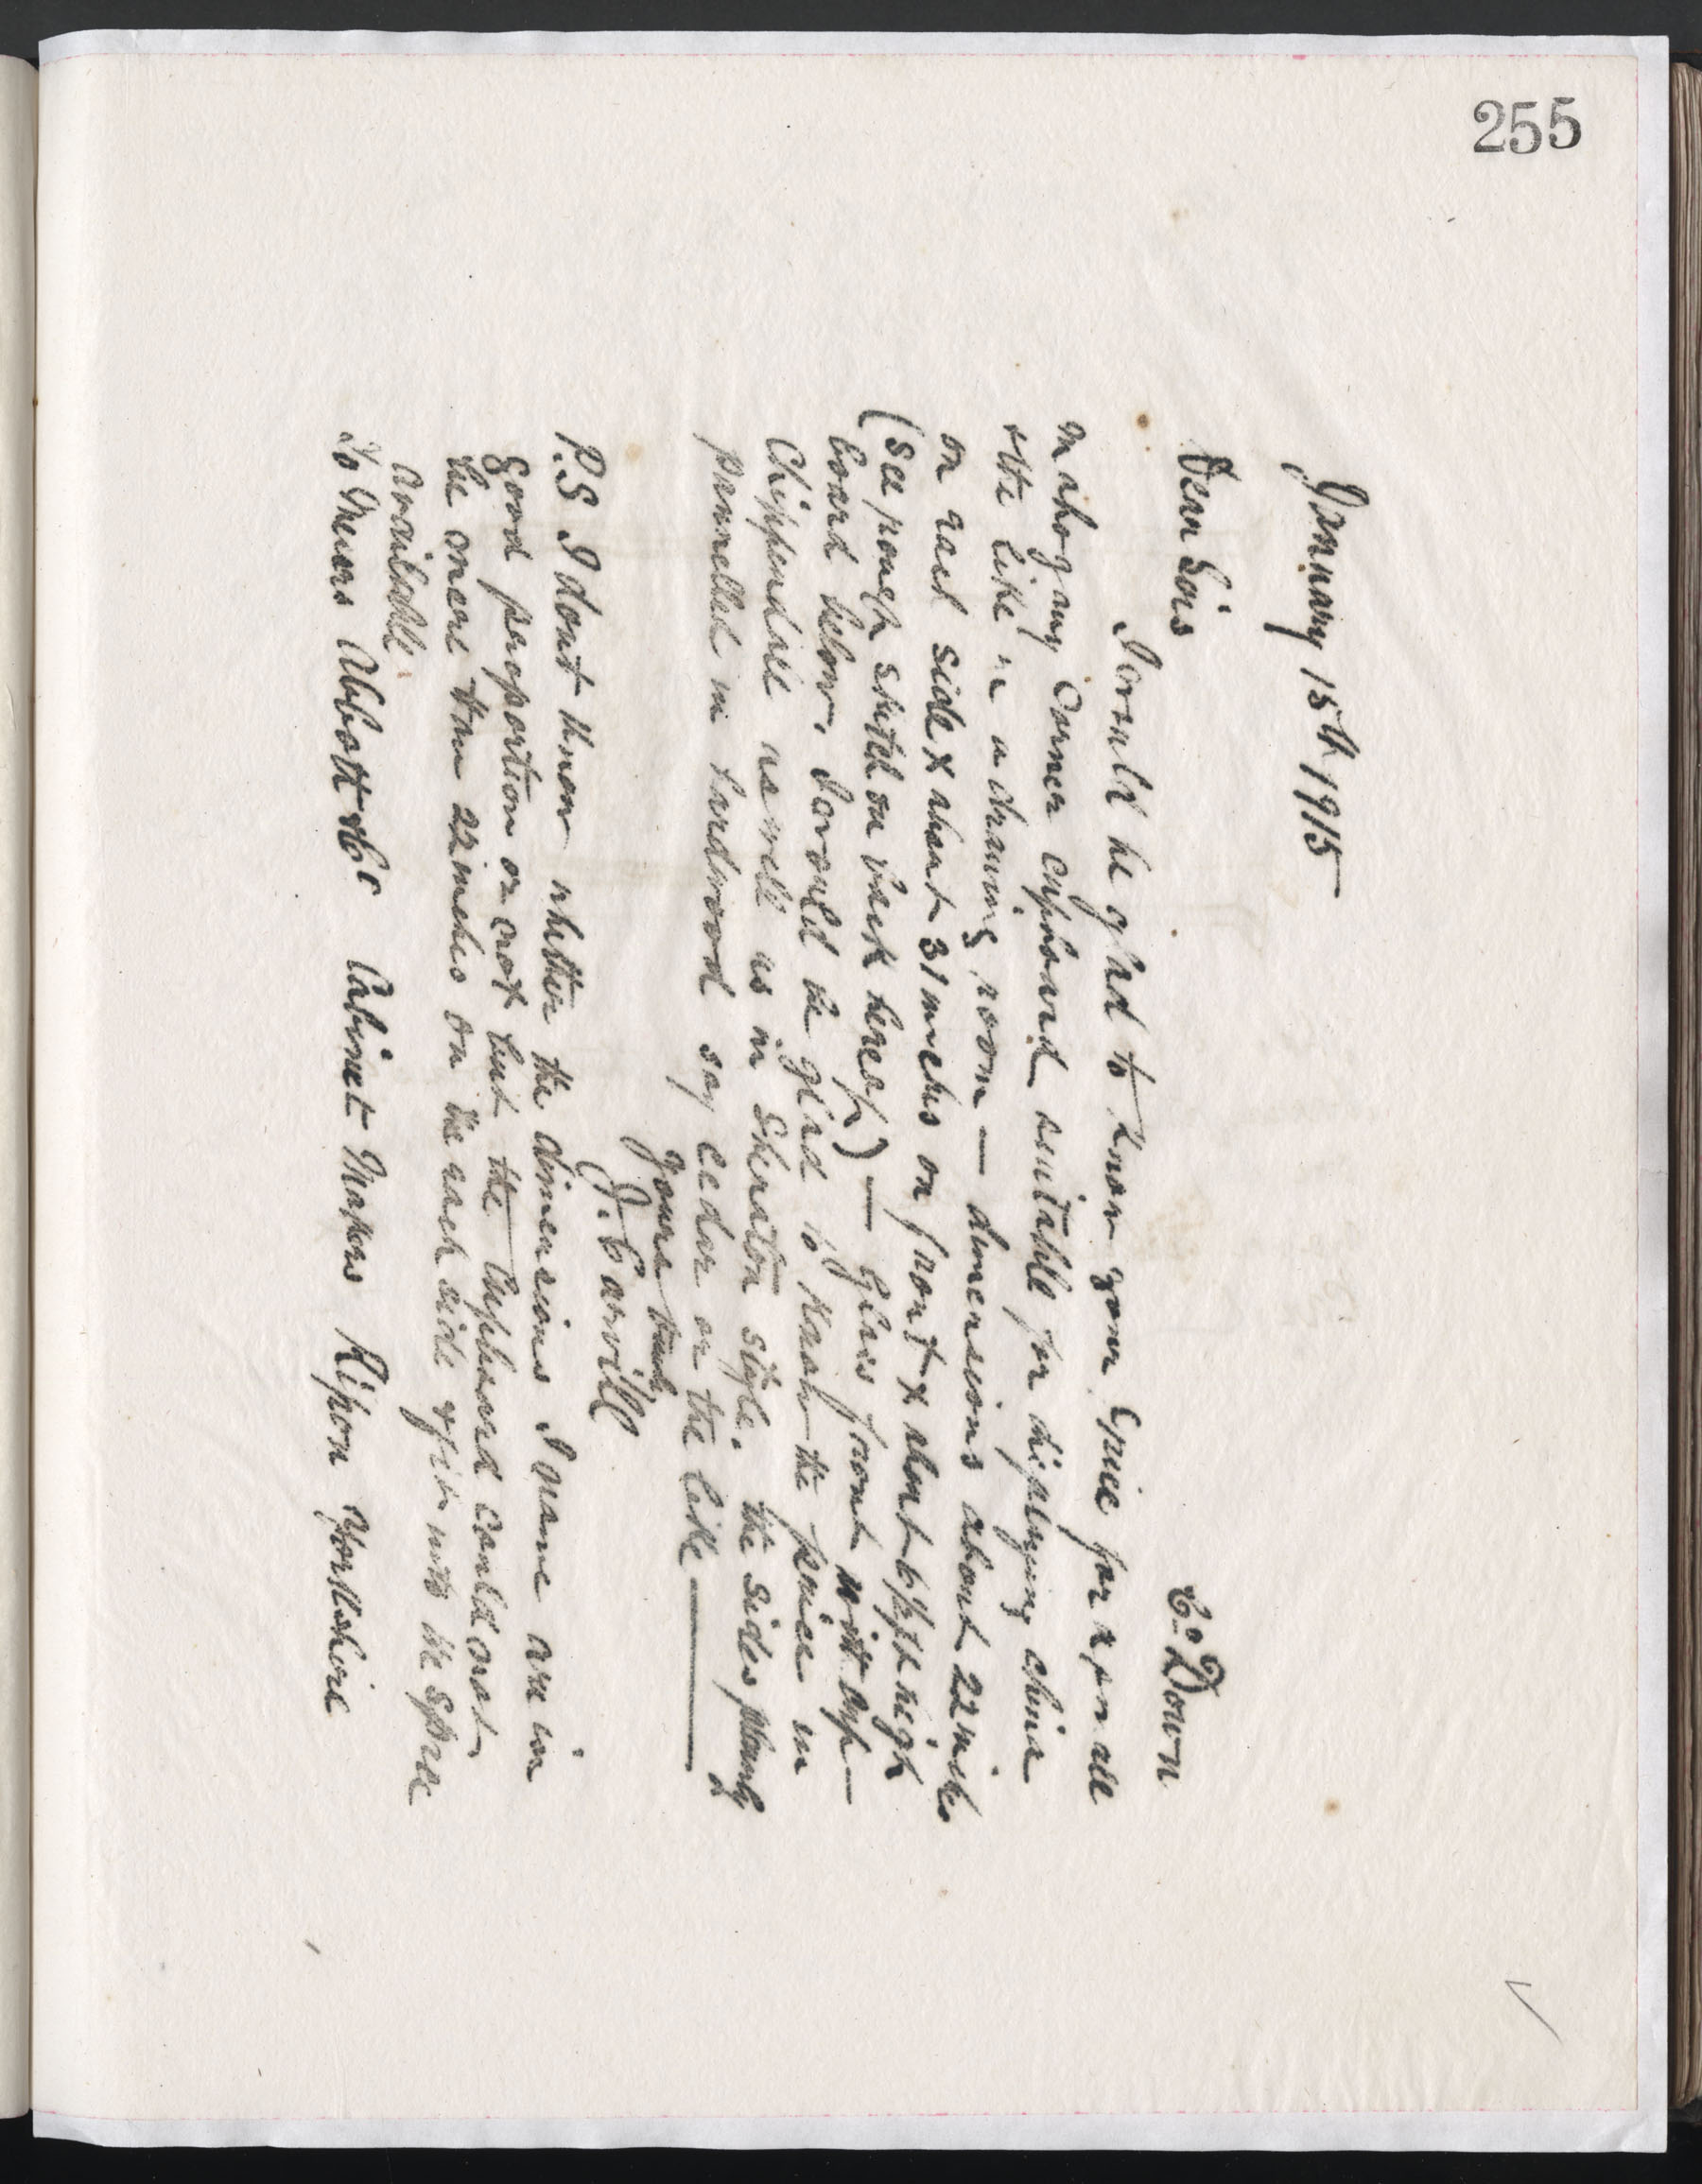 255
January 15th 1915
Co: Down
Dear Sirs
I would be glad to know your price for a small
mahogany corner cupboard suitable for displaying china
& the like in a drawing room — dimensions about 22 inches
on each side x about 31 inches on front x about 6 feet high
(see rough sketch on back hereof) — Glass front with cup-
board below. I would be glad to know the price in
Chippendale as well as in Sheraton style. the sides plainly
pannelled in hardwood say cedar or the like
Yours truly
J. Carvill
P.S I dont know whether the dimensions I name are in
good proportion or not but the cupboard could not
be more than 22 inches on the each side to fit into the space
available.
To Messrs Abbott & Co Cabinet Makers Ripon Yorkshire